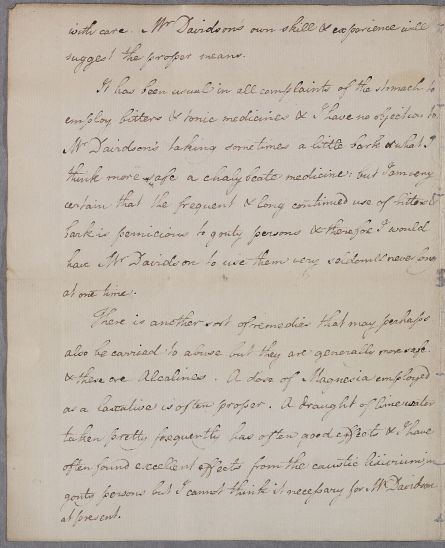 with care. Mr Davidson's own skill & experience will
suggest the proper means.
It has been usual in all complaints of the stomach to
employ bitters & tonic medicines & I have no objection to
Mr Davidson's taking sometimes a little bark & what I
think more safe a chalybeate medicine: but I am very
certain that the frequent & long continued use of bitters &
bark is pernicious to gouty persons & therefore I would
have Mr Davidson to use them very seldom & never long
at one time.
There is another sort of remedies that may perhaps
also be carried to abuse but they are generally more safe
& these are Alcalines. A dose of Magnesia employed
as a laxative is often proper. A draught of lime water
taken pretty frequently has often good effects & I have
often found excellent effects from the caustic lixivium in
gouty persons but I cannot think it necessary for Mr Davidson
at present.